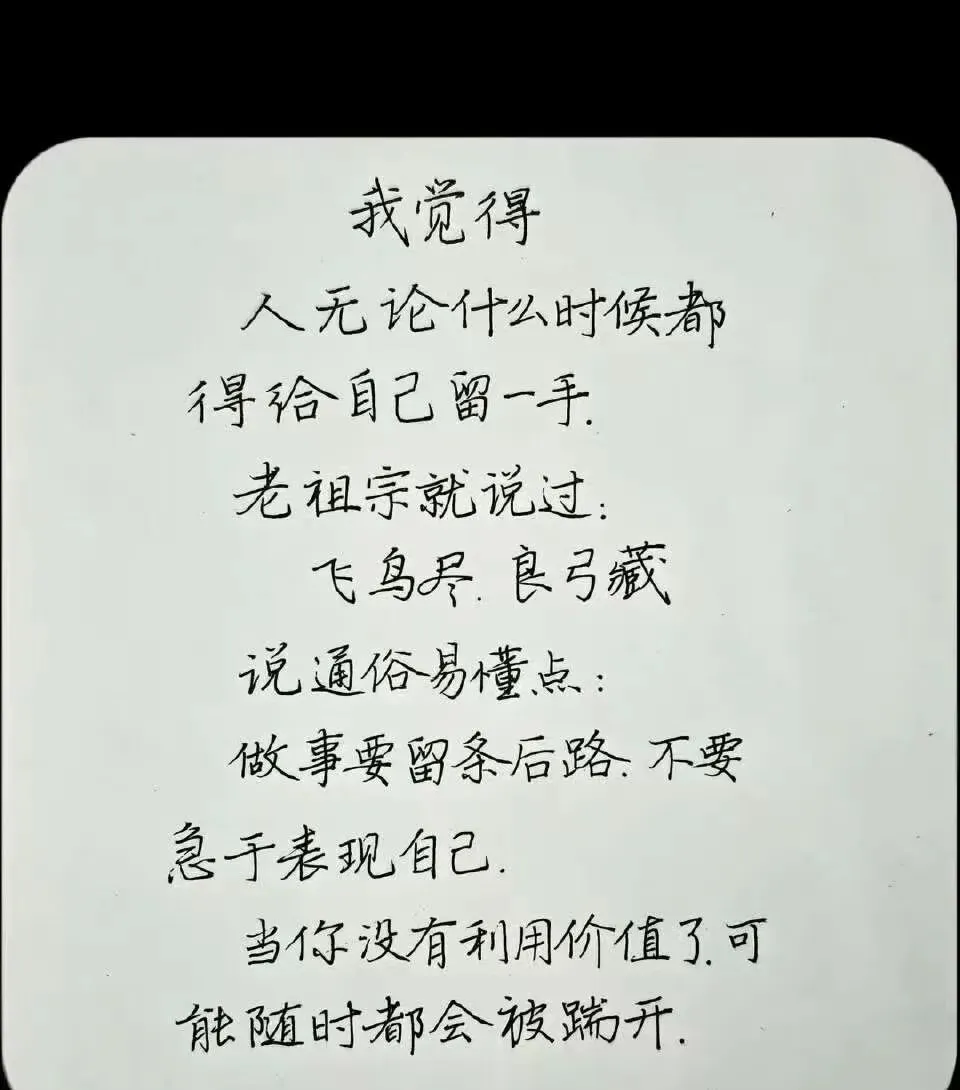 我觉得
人无论什么时候都
得给自己留一手.
老祖宗就说过:
飞鸟尽.良弓藏
说通俗易懂点:
做事要留条后路.不要
急于表现自己.
当你没有利用价值了.可
能随时都会被踹开.